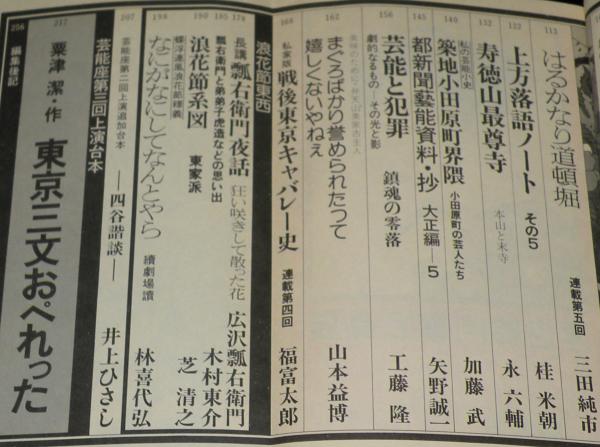 113 はるかなり道頓堀 連載第五回 三田純市
122 上方落語ノート その5 桂 米朝
132 寿徳山最尊寺 本山と末寺 永 六輔
140 私の芸能小史 築地小田原町界隈 小田原町の芸人たち 加藤 武
145 都新聞藝能資料・抄 大正編—5 矢野誠一
156 劇的なるもの—その光と影 芸能と犯罪 鎮魂の零落 工藤 隆
162 まぐろばかり誉められたって嬉しくないやねぇ 山本益博
168 私家版 戦後東京キャバレー史 連載第四回 福富太郎
浪花節東西
178 長講 瓢右衛門夜話 狂い咲きして散った花 広沢瓢右衛門
185 瓢右衛門と弟弟子虎造などの思い出 木村東介
190 浪花節系図 東家派 芝 清之
198 なにがなにしてなんとやら 續劇場讀 林喜代弘
207 芸能座第二回上演追加台本
芸能座第三回上演台本
—四谷諧談— 井上ひさし
217 粟津 潔・作 東京三文おぺれった
256 編集後記